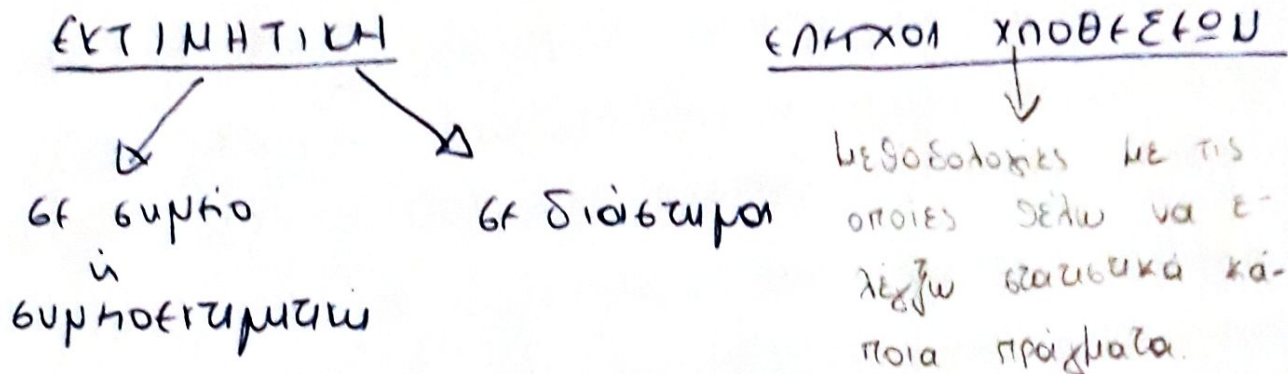 ΕΚΤΙΜΗΤΙΚΗ
σε σημείο
ή
σημειοεκτιμητική
σε διάστημα
ΕΛΕΓΧΟΙ ΥΠΟΘΕΣΕΩΝ
Μεθοδολογίες με τις
οποίες θέλω να ε-
λέγξω στατιστικά κά-
ποια πράγματα.